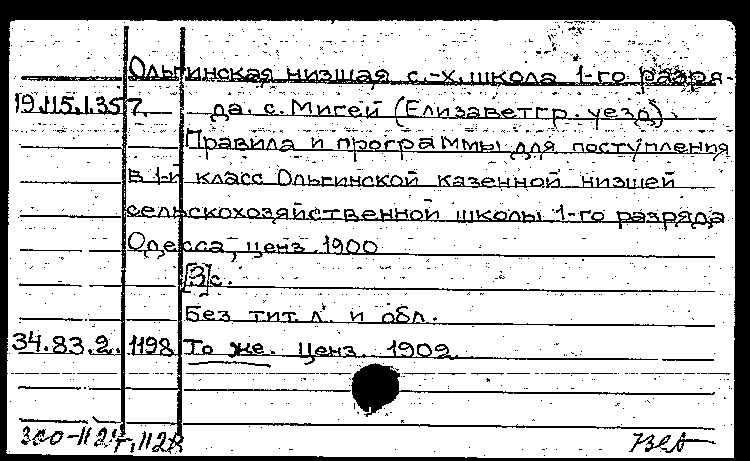 Ольгинская низшая с.-х. школа 1-го разря-
19.115.1.357. да. с. Мигей (Елизаветгр. уезд).
Правила и программы для поступления
в 1-й класс Ольгинской казенной низшей
сельскохозяйственной школы 1-го разряда
Одесса, ценз. 1900
[3]с.
Без тит. л. и обл.
34.83.2.1198 То же. Ценз. 1902
300-1127, 1128